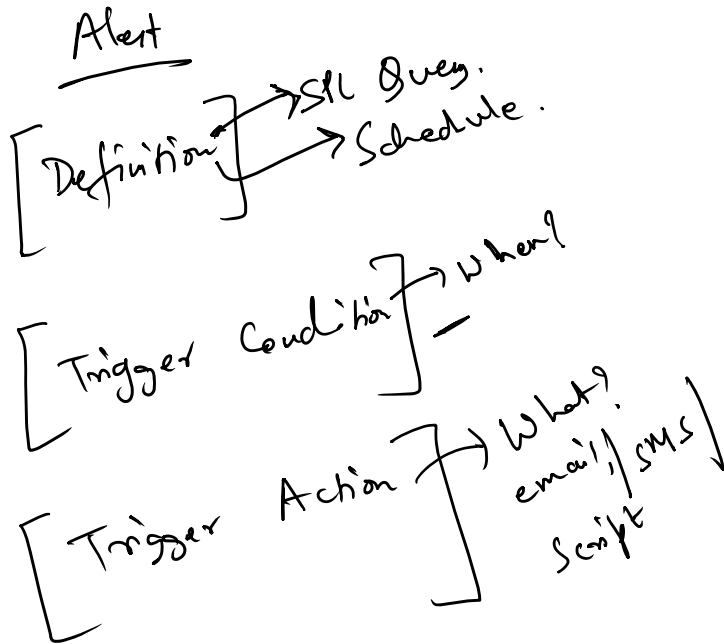 Alert
[Definition] → SPL Query.
→ Schedule.
[Trigger Condition] → When?
[Trigger Action] → What?
email / SMS /
Script